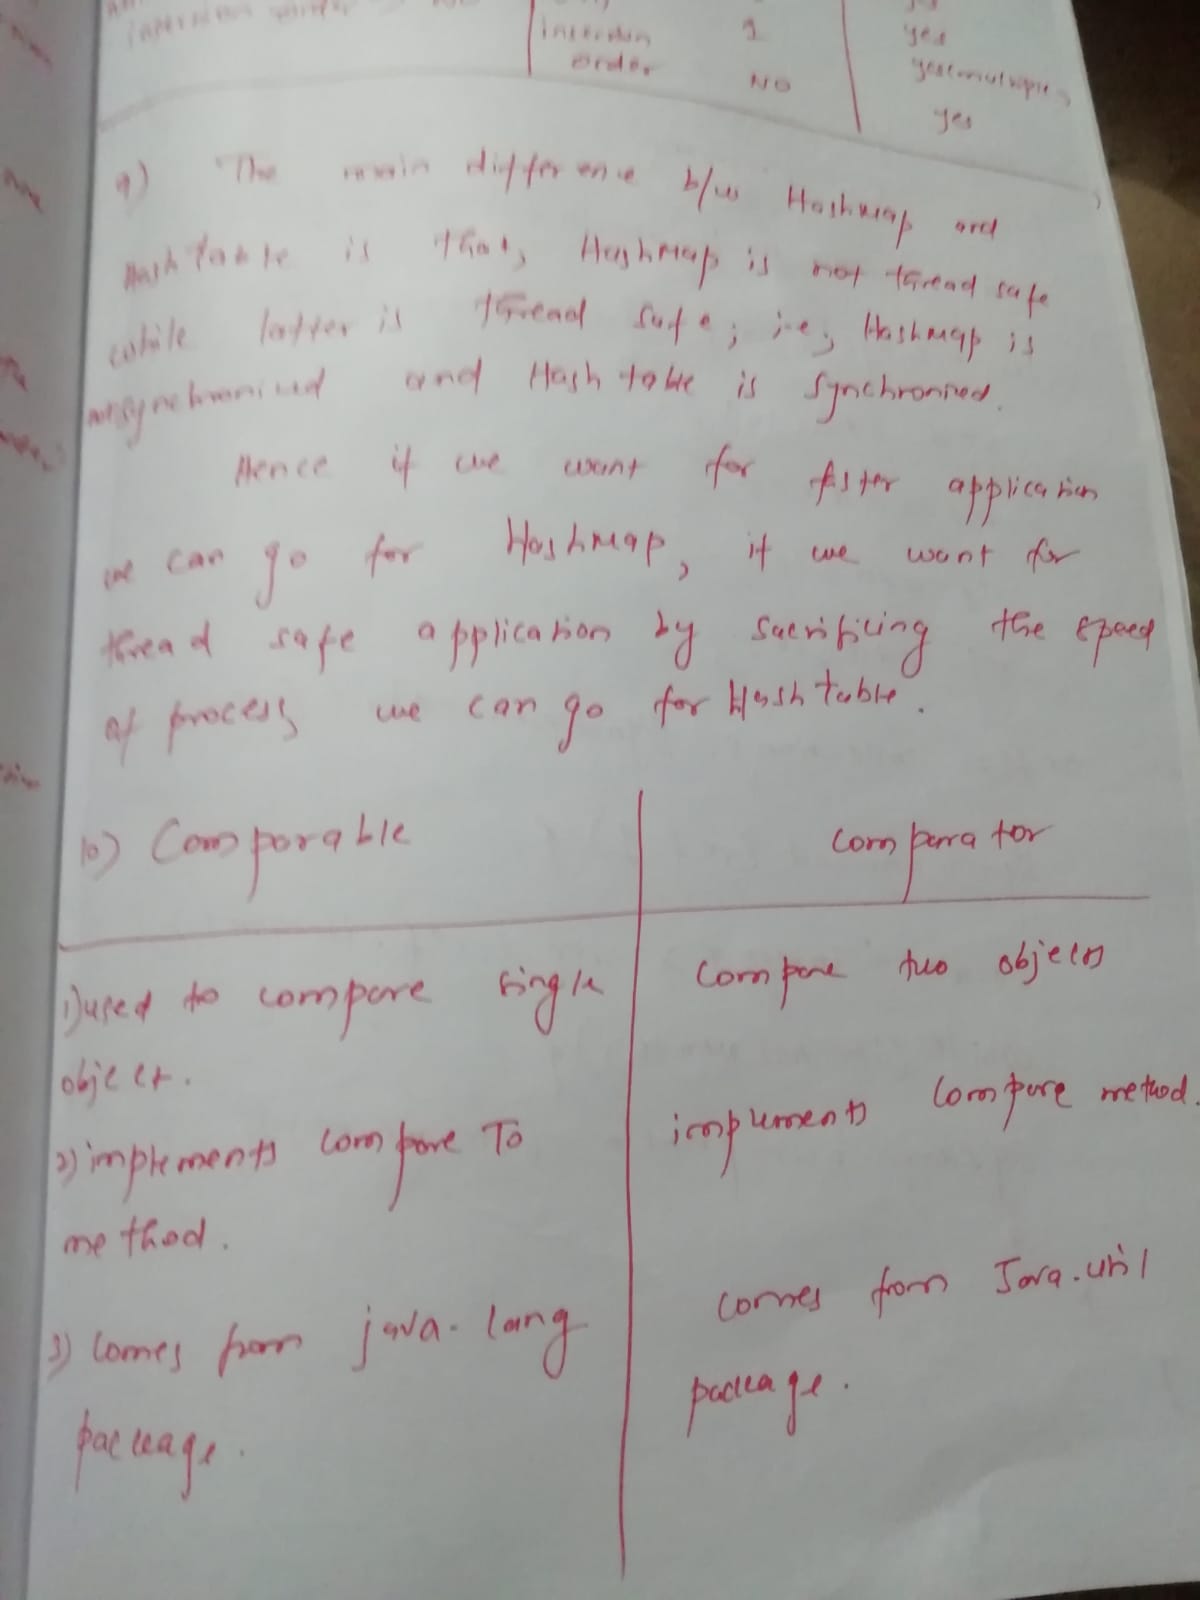 insertion
order
1
NO
yes
yes
9) The main difference b/w Hashmap and
Hash Table is that, HashMap is not thread safe
while latter is thread safe; i.e; Hashmap is
and Hash table is Synchronized.
Hence if we want for faster application
we can go for HashMap, if we want for
thread safe application by sacrificing the speed
of process we can go for Hash table.
10) Comparable
Comparator
1) used to compare single
object.
Compare two objects
2) implements compare To
method.
implements Compare method.
3) Comes from java.lang
package.
comes from Java.util
package.